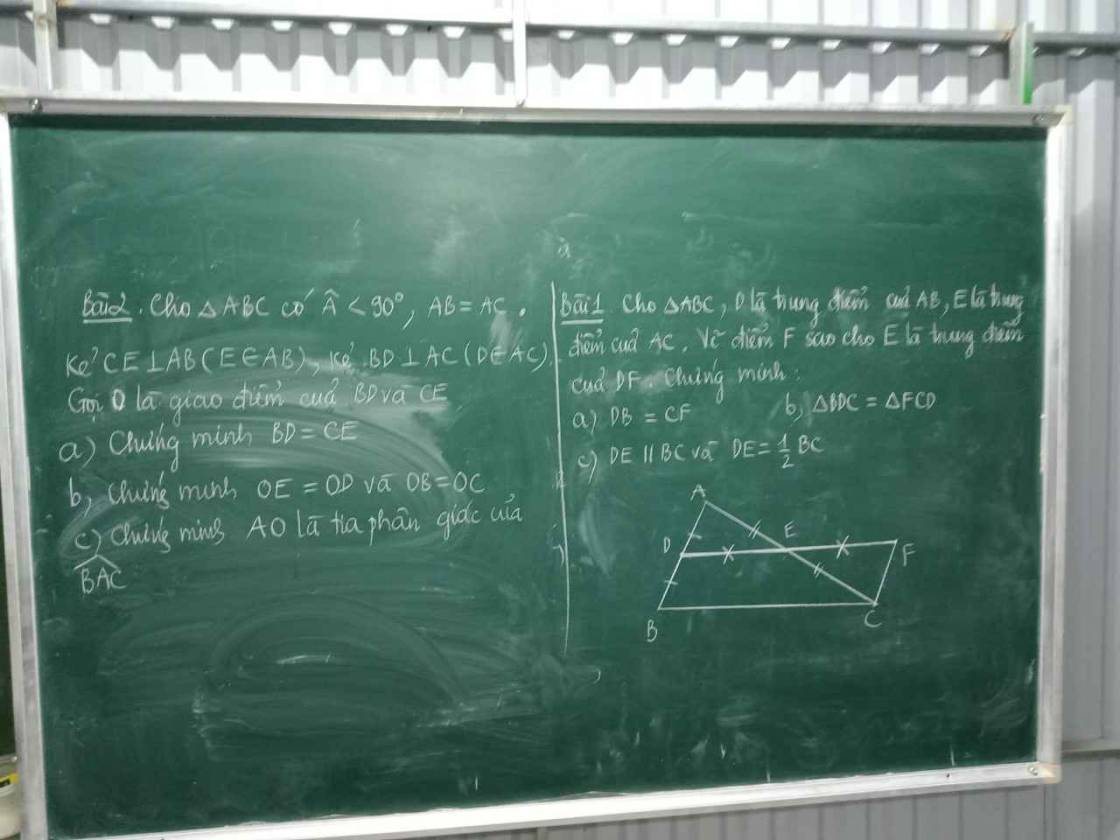 Bài 2. Cho △ABC có Â < 90°, AB = AC.
Kẻ CE ⊥ AB (E ∈ AB), kẻ BD ⊥ AC (D ∈ AC)
Gọi O là giao điểm của BD và CE
a) Chứng minh BD = CE
b, Chứng minh OE = OD và OB = OC
c) Chứng minh AO là tia phân giác của
BAC
Bài 1 Cho △ABC, D là trung điểm của AB, E là trung
điểm của AC. Vẽ điểm F sao cho E là trung điểm
của DF. Chứng minh:
a) DB = CF b, △BDC = △FCD
c) DE // BC và DE = 1/2 BC
A
D E F
B C